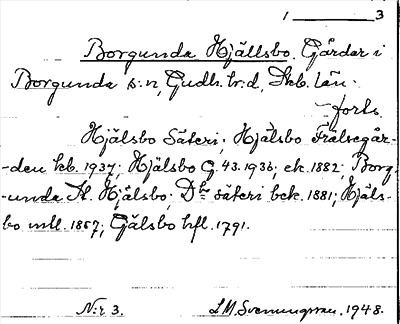 1 3
Borgunda Hjällsbo. Gårdar i
Borgunda s:n, Gudh. hr:d, Skb. län.
forts.
Hjälsbo Säteri; Hjälsbo Frälsegår-
-den kb. 1937; Hjälsbo G. 43. 1936; ek. 1882; Borg-
-unda St. Hjälsbo; D:o säteri bek. 1881; Hjäls-
bo mtl. 1857; Gjälsbo hfl. 1791.
N:r 3. L.M. Svenungsson. 1948.